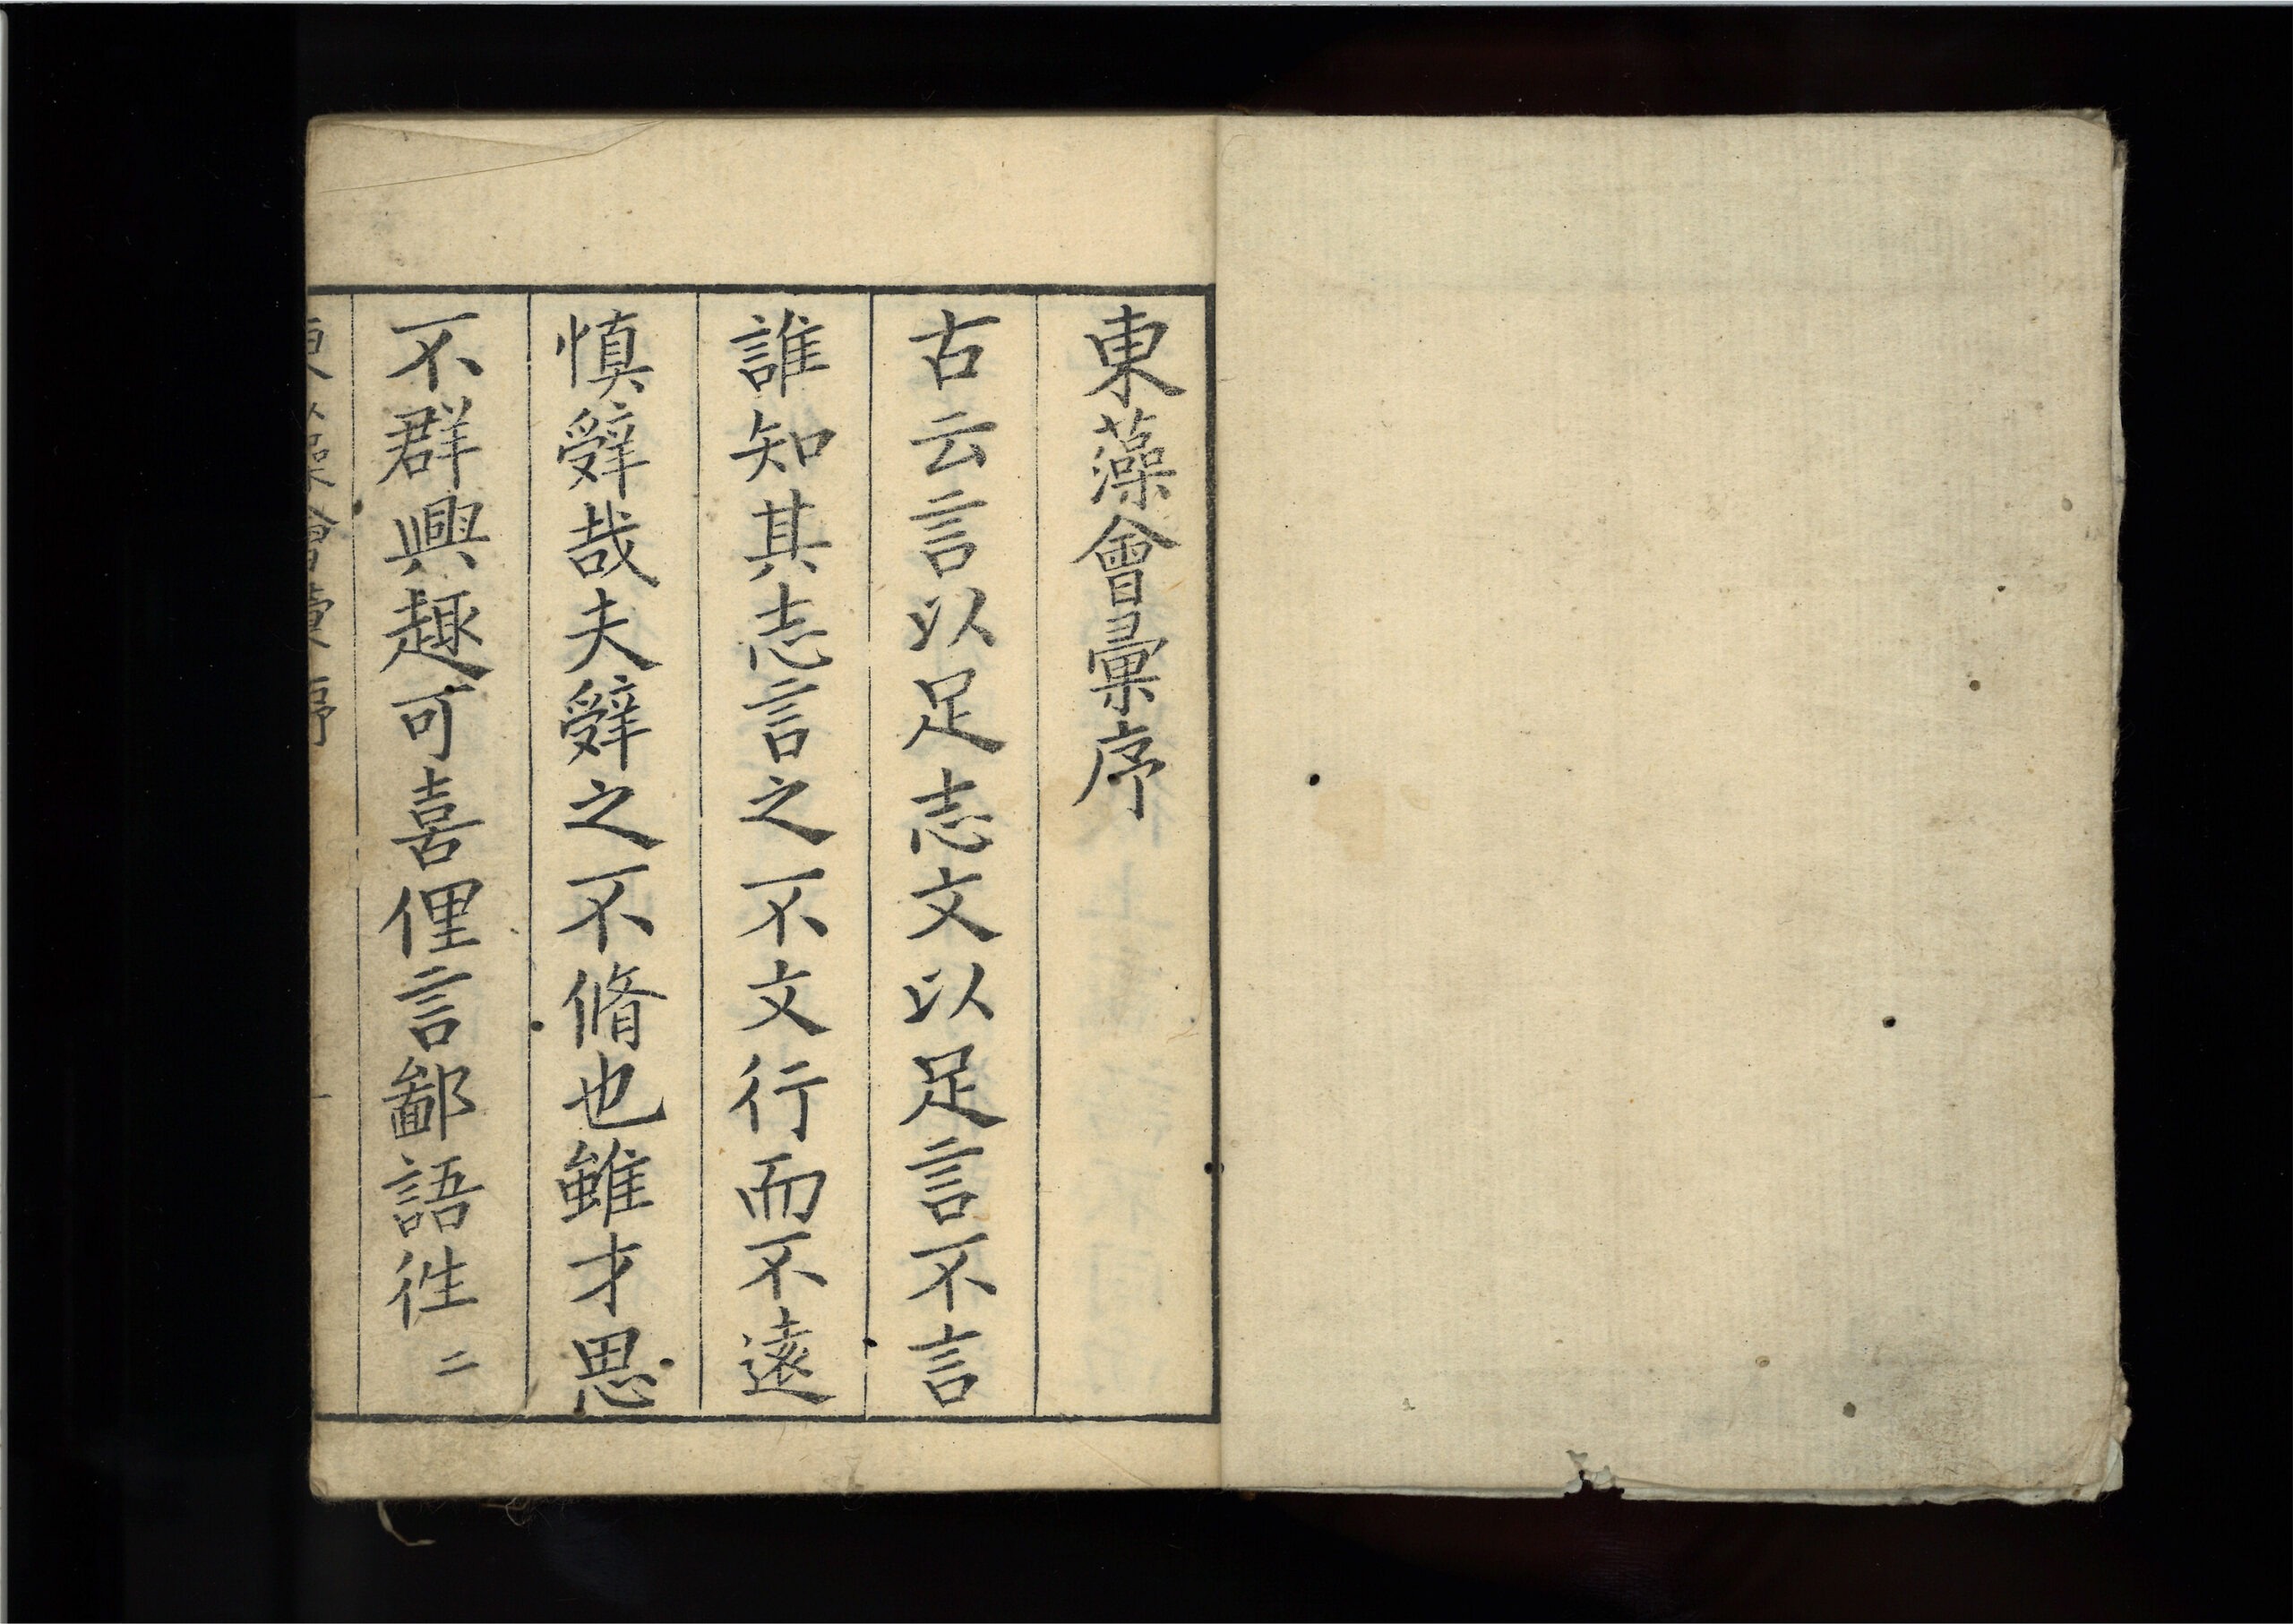 東藻會彙序
古云言以足志文以足言不言
誰知其志言之不文行而不遠
慎辤哉夫辤之不脩也雖才思
不群興趣可喜俚言鄙語徃〻